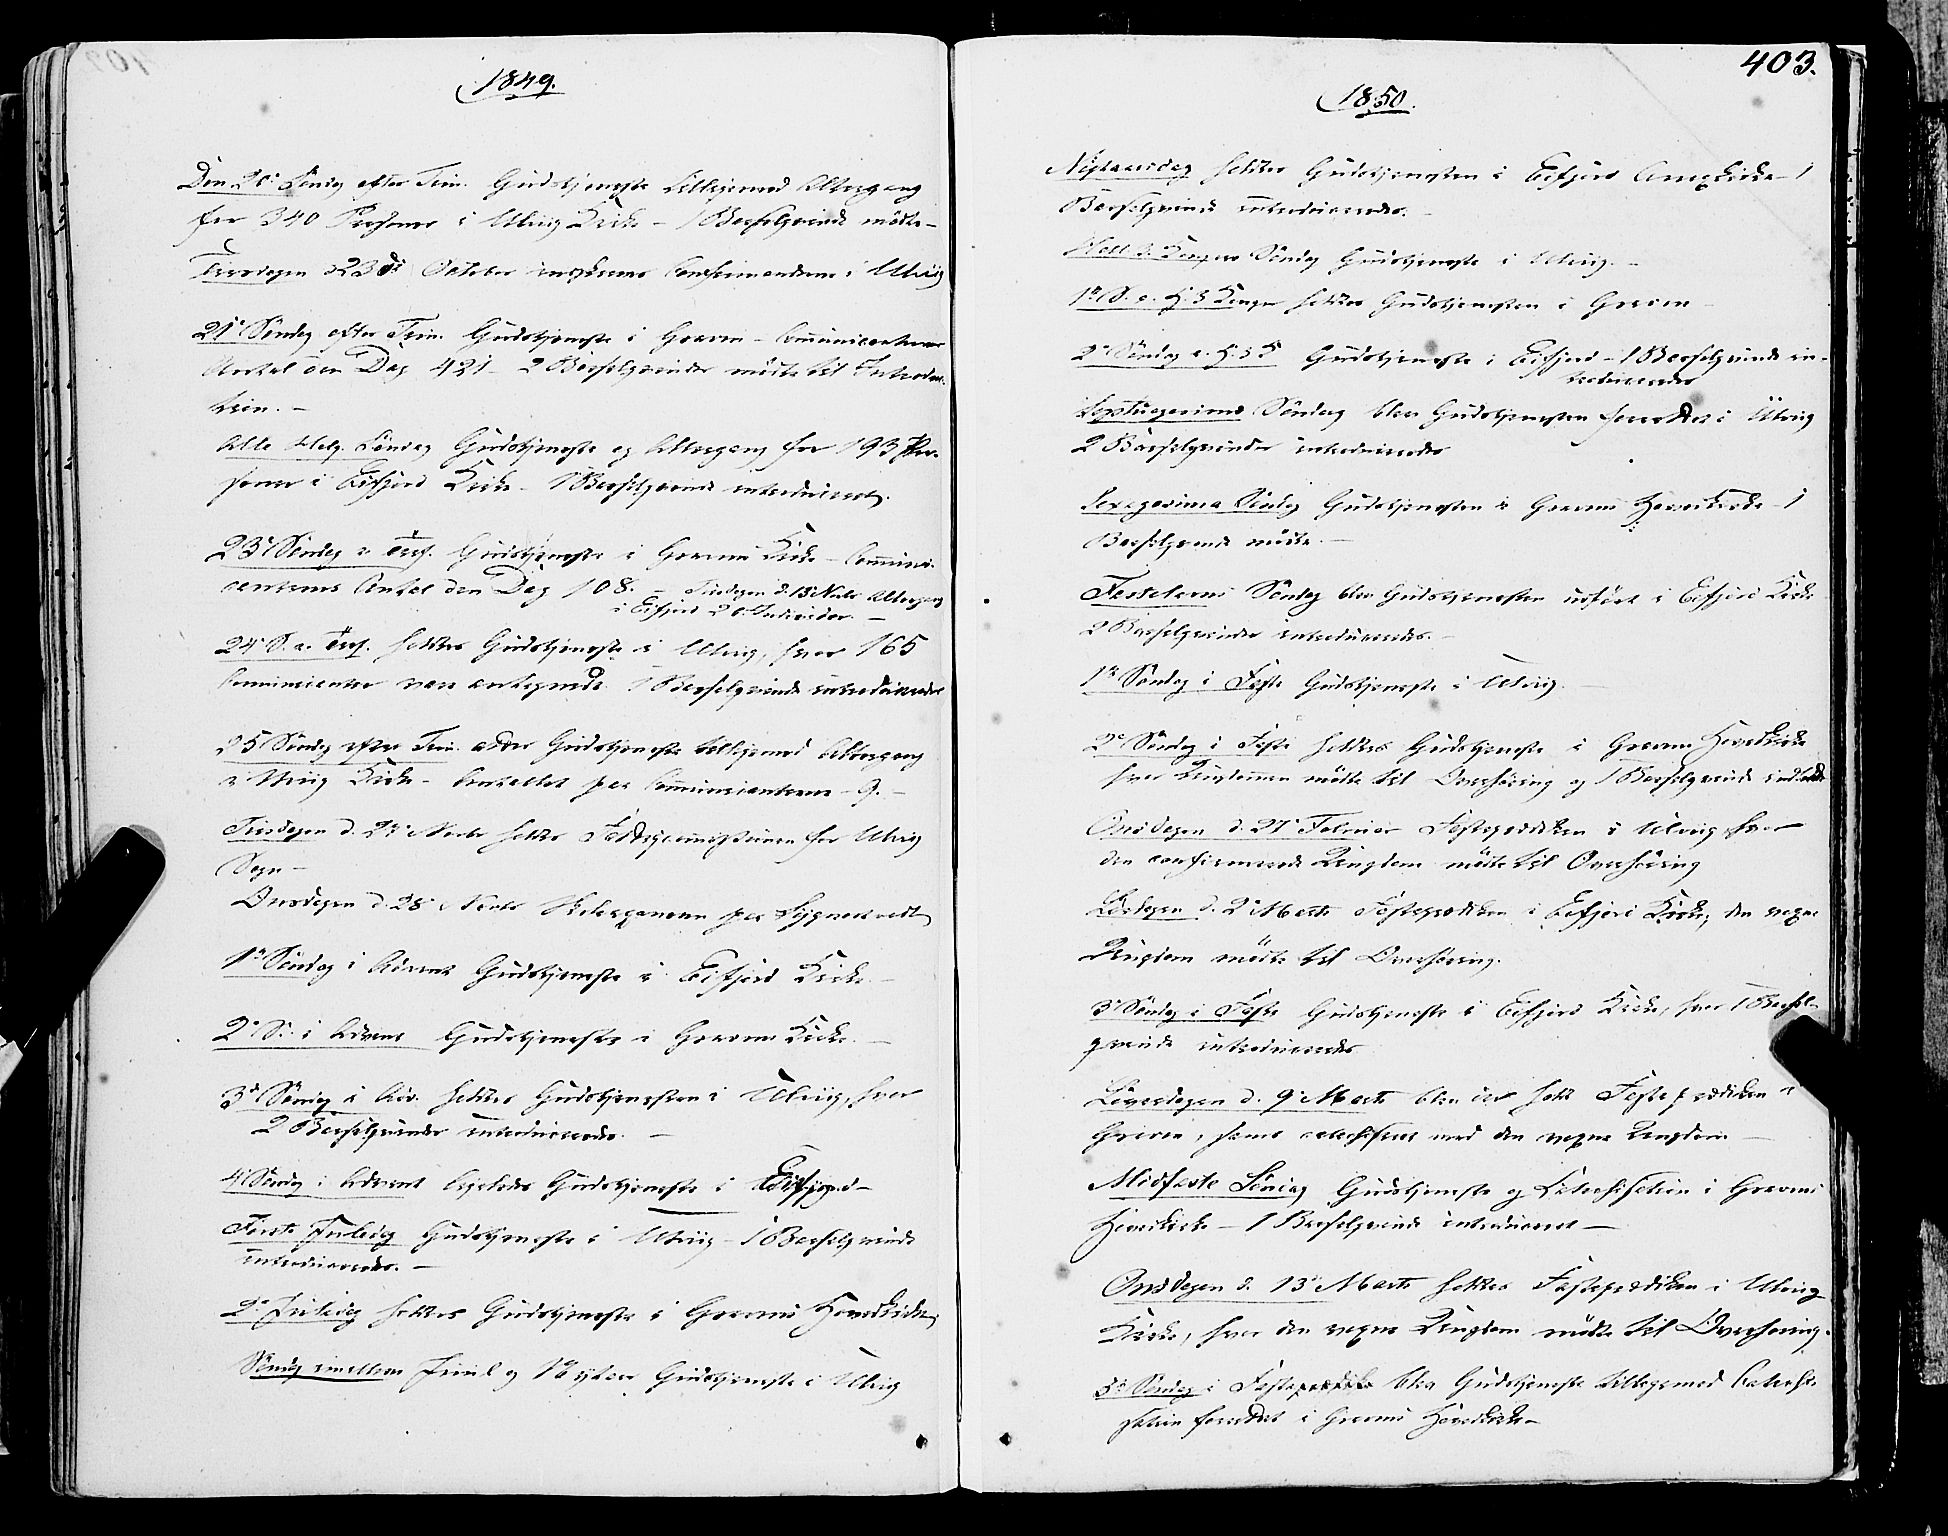 1849.
Den 20de Søndag efter Trin. Gudstjeneste tilligemed Altergang
for 340 Personer i Ulvig Kirke - 1 Barselqvinde mødte -
Tirsdagen d 23de October Confirmanderne i Ulvig
21de Søndag efter Trin. Gudstjeneste i Graven - Communicanternes
Antal den Dag 421 - 2 Barselqvinder mødte til Introduc-
tion. -
Alle Helg. Søndag Gudstjeneste og Altergang for 193 Per-
soner i Eifjord Kirke - 1 Barselqvinde introduceret.
23de Søndag e. Tref. Gudstjeneste i Gravens Kirke - Communi-
canternes Antal den Dag 108. - Tirsdagen d. 13 Novbr Altergang
i Eifjord 26 Individer. -
24de S. e. Tref. holdtes Gudstjeneste i Ulvig, hvor 165
Communicanter vare antegnede 1 Barselqvinde introduceredes
25 Søndag efter Trin. Gudstjeneste tilligemed Altergang
i Ulvig Kirke - Antallet paa Communicanterne - 9. -
Tirsdagen d. 27de Novbr holdtes Fattigcommissionen for Ulvig
Sogn -
Onsdagen d. 28de Novbr paa
1ste Søndag i Advent Gudstjeneste i Eifjord Kirke. -
2den S. i Advent Gudstjeneste i Gravens Kirke. -
3die Søndag i Adv. holdtes Gudstjenesten i Ulvig, hvor
2 Barselqvinder introduceredes. -
4de Søndag i Advent Gudstjeneste i Eifjord -
Første Juledag Gudstjeneste i Ulvig - 1 Barselqvinde
introduceredes. -
2den Juledag holdtes Gudstjeneste i Gravens Hovedkirke
Søndag imellem Juul og Nytaar Gudstjeneste i Ulvig
403.
1850.
Nytaarsdag holdtes Gudstjenesten i Eifjord Annexkirke - 1
Barselqvinde introduceredes. -
Hell. 3 Kongers Søndag Gudstjeneste i Ulvig. -
1ste S. e. H. 3 Konger holdtes Gudstjenesten i Graven -
2den Søndag e. H. 3 K Gudstjeneste i Eifjord - 1 Barselqvinde in-
troduceredes
Septuagesima Søndag blev Gudstjenesten forrettet i Ulvig
2 Barselqvinder introduceredes
Sexagesima Søndag Gudstjenesten i Gravens Hovedkirke - 1
Barselqvinde mødte. -
Fastelavns Søndag blev Gudstjenesten udført i Eifjord Kirke
2 Barselqvinder introduceredes. -
1ste Søndag i Faste Gudstjeneste i Ulvig. -
2den Søndag i Faste holdtes Gudstjeneste i Gravens Hovedkirke
hvor Ungdommen mødte til Overhøring og 1 Barselqvinde indledtes
Onsdagen d. 27de Februar Fasteprædiken i Ulvig hvor
den confirmerede Ungdom mødte til Overhøring
Løverdagen d. 2den Marts Fasteprædiken i Eifjord Kirke, den voxne
Ungdom mødte til Overhøring.
3die Søndag i Faste Gudstjeneste i Eifjord Kirke, hvor 1 Barsel-
qvinde introduceredes
Løverdagen d. 9de Marts blev der holdt Fasteprædiken i
Graven, samt catechiseret med den voxne Ungdom -
Midfaste Søndag Gudstjeneste og Catechisation i Gravens
Hovedkirke - 1 Barselqvinde introduceret -
Onsdagen d. 13de Marts holdtes Fasteprædiken i Ulvig
Kirke, hvor den voxne Ungdom mødte til Overhøring.
5te Søndag i Faste blev Gudstjeneste tilligemed Catechi-
sation forrettet i Gravens Hovedkirke -